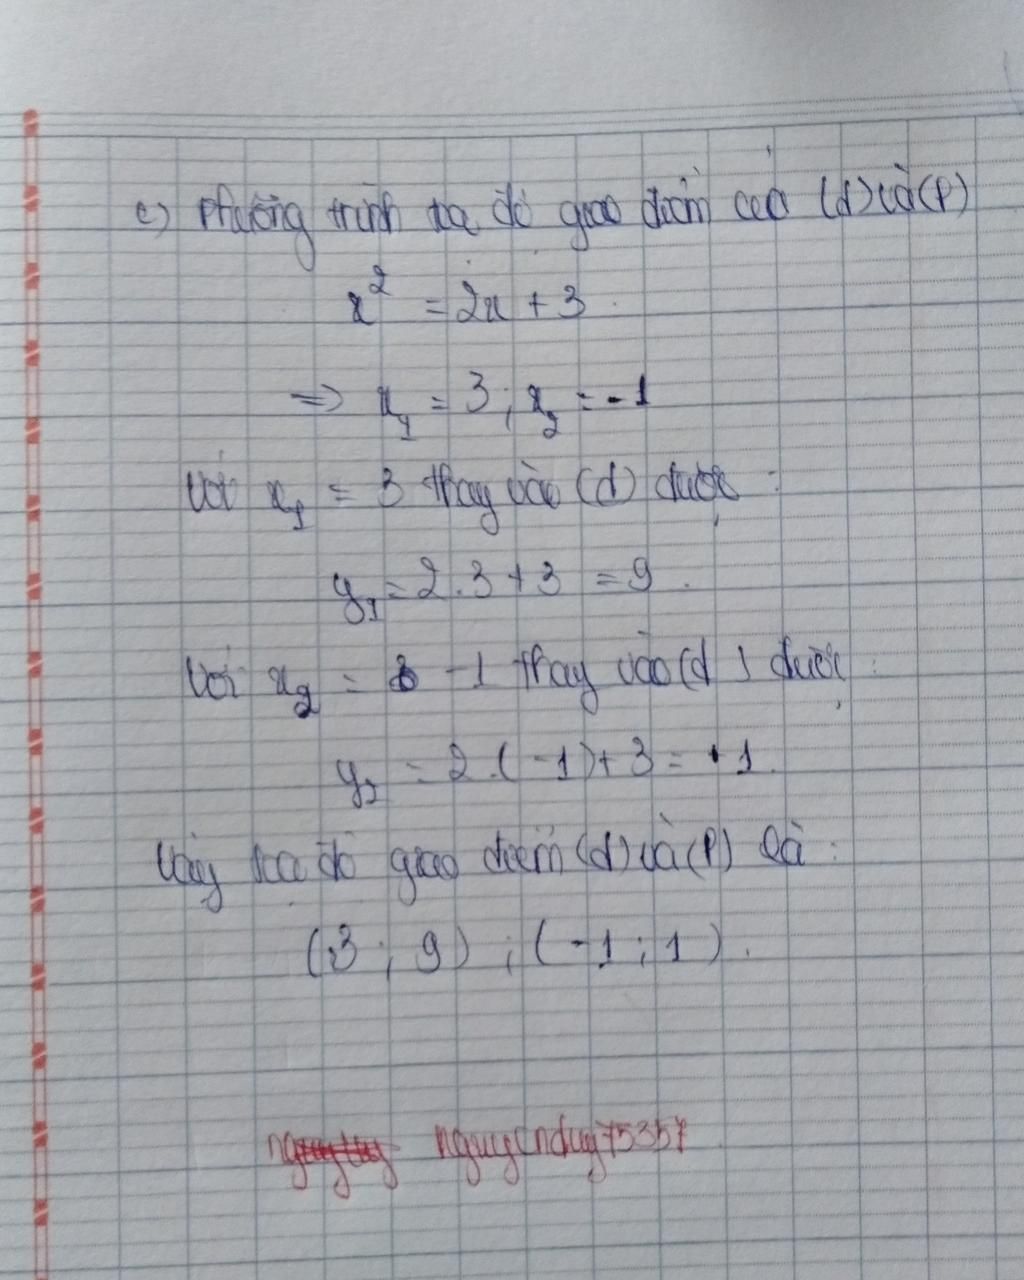 c) Phương trình toạ độ giao điểm của (d) và (P)
x² = 2x + 3.
=> x₁ = 3 ; x₂ = -1
Với x₁ = 3 thay vào (d) được :
y₁ = 2.3 + 3 = 9.
Với x₂ = -1 thay vào (d) được :
y₂ = 2.(-1) + 3 = 1.
Vậy toạ độ giao điểm (d) và (P) là :
(3 ; 9) ; (-1 ; 1).
nguyenduy75357